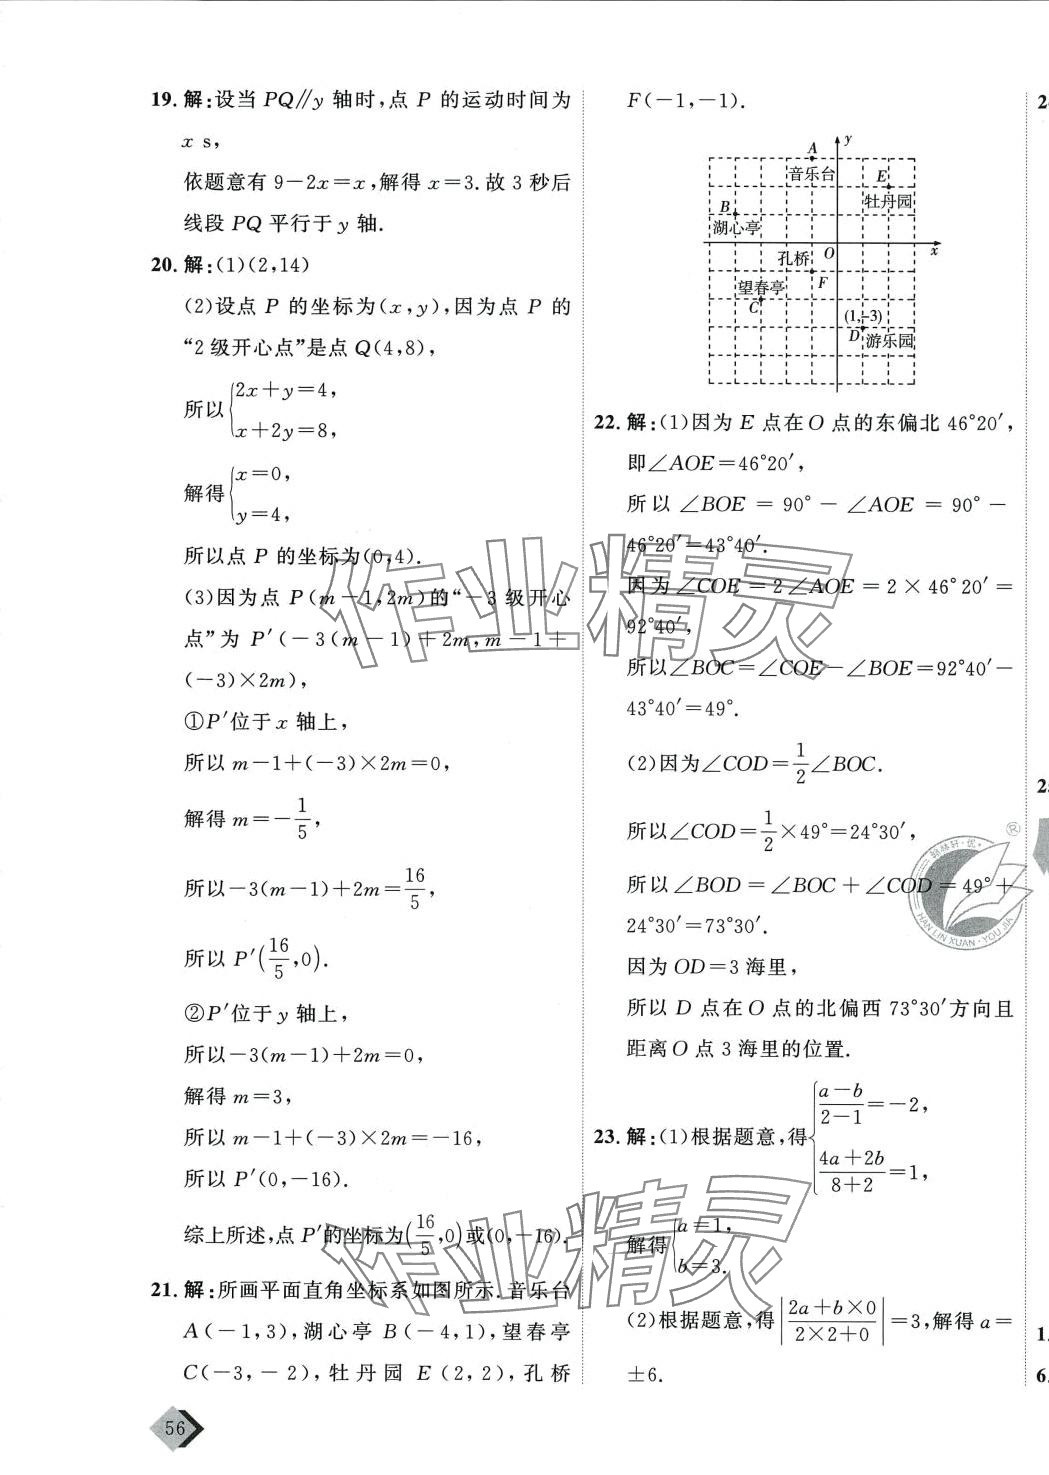 19. 解:设当 PQ∥y 轴时,点 P 的运动时间为
x s,
依题意有 9-2x=x,解得 x=3.故 3 秒后
线段 PQ 平行于 y 轴.
20. 解:(1)(2,14)
(2)设点 P 的坐标为(x,y),因为点 P 的
“2级开心点”是点 Q(4,8),
所以{2x+y=4,
x+2y=8,
解得{x=0,
y=4,
所以点 P 的坐标为(0,4).
(3)因为点 P(m-1,2m)的“-3级开心
点”为 P′(-3(m-1)+2m,m-1+
(-3)×2m),
①P′位于 x 轴上,
所以 m-1+(-3)×2m=0,
解得 m=-1/5,
所以-3(m-1)+2m=16/5,
所以 P′(16/5,0).
②P′位于 y 轴上,
所以-3(m-1)+2m=0,
解得 m=3,
所以 m-1+(-3)×2m=-16,
所以 P′(0,-16).
综上所述,点 P′的坐标为(16/5,0)或(0,-16).
21. 解:所画平面直角坐标系如图所示.音乐台
A(-1,3),湖心亭 B(-4,1),望春亭
C(-3,-2),牡丹园 E(2,2),孔桥
56
F(-1,-1).
y
A
音乐台
E
牡丹园
B
湖心亭
孔桥
O
x
F
望春亭
C
(1,-3)
D
游乐园
22. 解:(1)因为 E 点在 O 点的东偏北 46°20′,
即∠AOE=46°20′,
所以∠BOE=90°-∠AOE=90°-
46°20′=43°40′.
因为∠COE=2∠AOE=2×46°20′=
92°40′,
所以∠BOC=∠COE-∠BOE=92°40′-
43°40′=49°.
(2)因为∠COD=1/2∠BOC.
所以∠COD=1/2×49°=24°30′,
所以∠BOD=∠BOC+∠COD=49°+
24°30′=73°30′.
因为 OD=3 海里,
所以 D 点在 O 点的北偏西 73°30′方向且
距离 O 点 3 海里的位置.
23. 解:(1)根据题意,得{(a-b)/(2-1)=-2,
(4a+2b)/(8+2)=1,
解得{a=1,
b=3.
(2)根据题意,得|(2a+b×0)/(2×2+0)|=3,解得 a=
±6.
作业精灵
作业精灵
翰林轩·优+
HAN LIN XUAN·YOU JIA
®
1.
6.